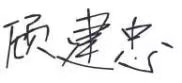 顾建忠